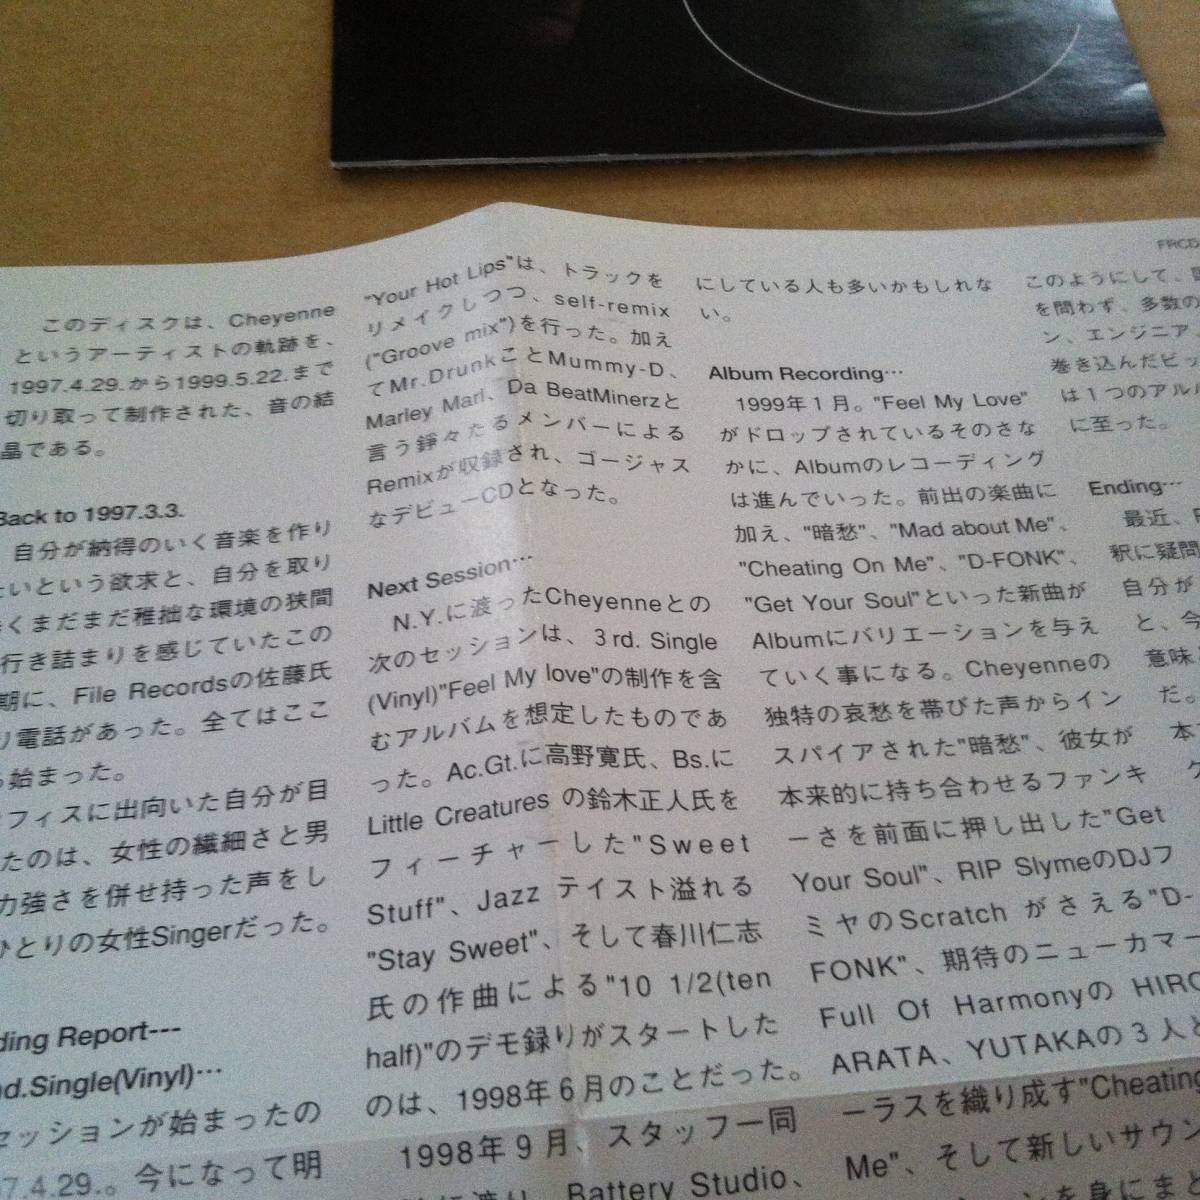 このディスクは、Cheyenne
というアーティストの軌跡を、
1997.4.29.から1999.5.22.まで
切り取って制作された、音の結
晶である。
Back to 1997.3.3.
自分が納得のいく音楽を作り
たいという欲求と、自分を取り
くまだまだ稚拙な環境の狭間
行き詰まりを感じていたこの
期に、File Recordsの佐藤氏
り電話があった。全てはここ
ら始まった。
フィスに出向いた自分が目
たのは、女性の繊細さと男
力強さを併せ持った声をし
ひとりの女性Singerだった。
ding Report---
nd.Single(Vinyl)…
セッションが始まったの
97.4.29.。今になって明
"Your Hot Lips"は、トラックを
リメイクしつつ、self-remix
("Groove mix")を行った。加え
てMr.DrunkことMummy-D、
Marley Marl、Da BeatMinerzと
言う錚々たるメンバーによる
Remixが収録され、ゴージャス
なデビューCDとなった。
Next Session…
N.Y.に渡ったCheyenneとの
次のセッションは、3rd. Single
(Vinyl)"Feel My love"の制作を含
むアルバムを想定したものであ
った。Ac.Gt.に高野寛氏、Bs.に
Little Creatures の鈴木正人氏を
フィーチャーした"Sweet
Stuff"、Jazz テイスト溢れる
"Stay Sweet"、そして春川仁志
氏の作曲による"10 1/2(ten
half)"のデモ録りがスタートした
のは、1998年6月のことだった。
1998年9月、スタッフ一同
Battery Studio、
にしている人も多いかもしれな
い。
Album Recording…
1999年1月。"Feel My Love"
がドロップされているそのさな
かに、Albumのレコーディング
は進んでいった。前出の楽曲に
加え、"暗愁"、"Mad about Me"、
"Cheating On Me"、"D-FONK"、
"Get Your Soul"といった新曲が
Albumにバリエーションを与え
ていく事になる。Cheyenneの
独特の哀愁を帯びた声からイン
スパイアされた"暗愁"、彼女が
本来的に持ち合わせるファンキ
ーさを前面に押し出した"Get
Your Soul"、RIP SlymeのDJフ
ミヤのScratch がさえる"D-
FONK"、期待のニューカマー
Full Of Harmonyの HIRO
ARATA、YUTAKAの3人と
ーラスを織り成す"Cheating
Me"、そして新しいサウン
を身にまと
FRCD
このようにして、
を問わず、多数の
ン、エンジニア
巻き込んだビッ
は1つのアル
に至った。
Ending…
最近、
釈に疑問
自分が
と、今
意味
だ。
本